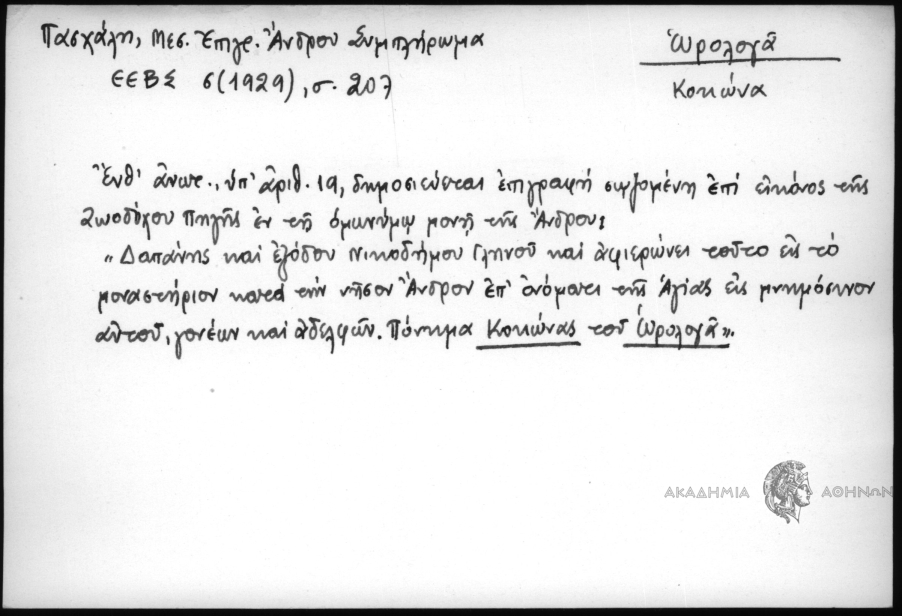 Πασχάλη, Μεσ. Ἐπιγρ. Ἄνδρου Συμπλήρωμα
ΕΕΒΣ 6(1929), σ. 207
Ὡρολογᾶ
Κοκώνα
Ἔνθ' ἀνωτ., ὑπ' ἀριθ. 19, δημοσιεύεται ἐπιγραφή σῳζομένη ἐπί εἰκόνος τῆς
Ζωοδόχου Πηγῆς ἐν τῇ ὁμωνύμῳ μονῇ τῆς Ἄνδρου:
"Δαπάνης καί ἐξόδου Νικοδήμου Γληνοῦ καί ἀφιερώνει τοῦτο εἰς τὸ
μοναστήριον κατά τήν νῆσον Ἄνδρον ἐπ' ὀνόματι τῆς Ἁγίας εἰς μνημόσυνον
αὐτοῦ, γονέων καί ἀδελφῶν. Πόνημα Κοκώνας τοῦ Ὡρολογᾶ".
ΑΚΑΔΗΜΙΑ ΑΘΗΝΩΝ